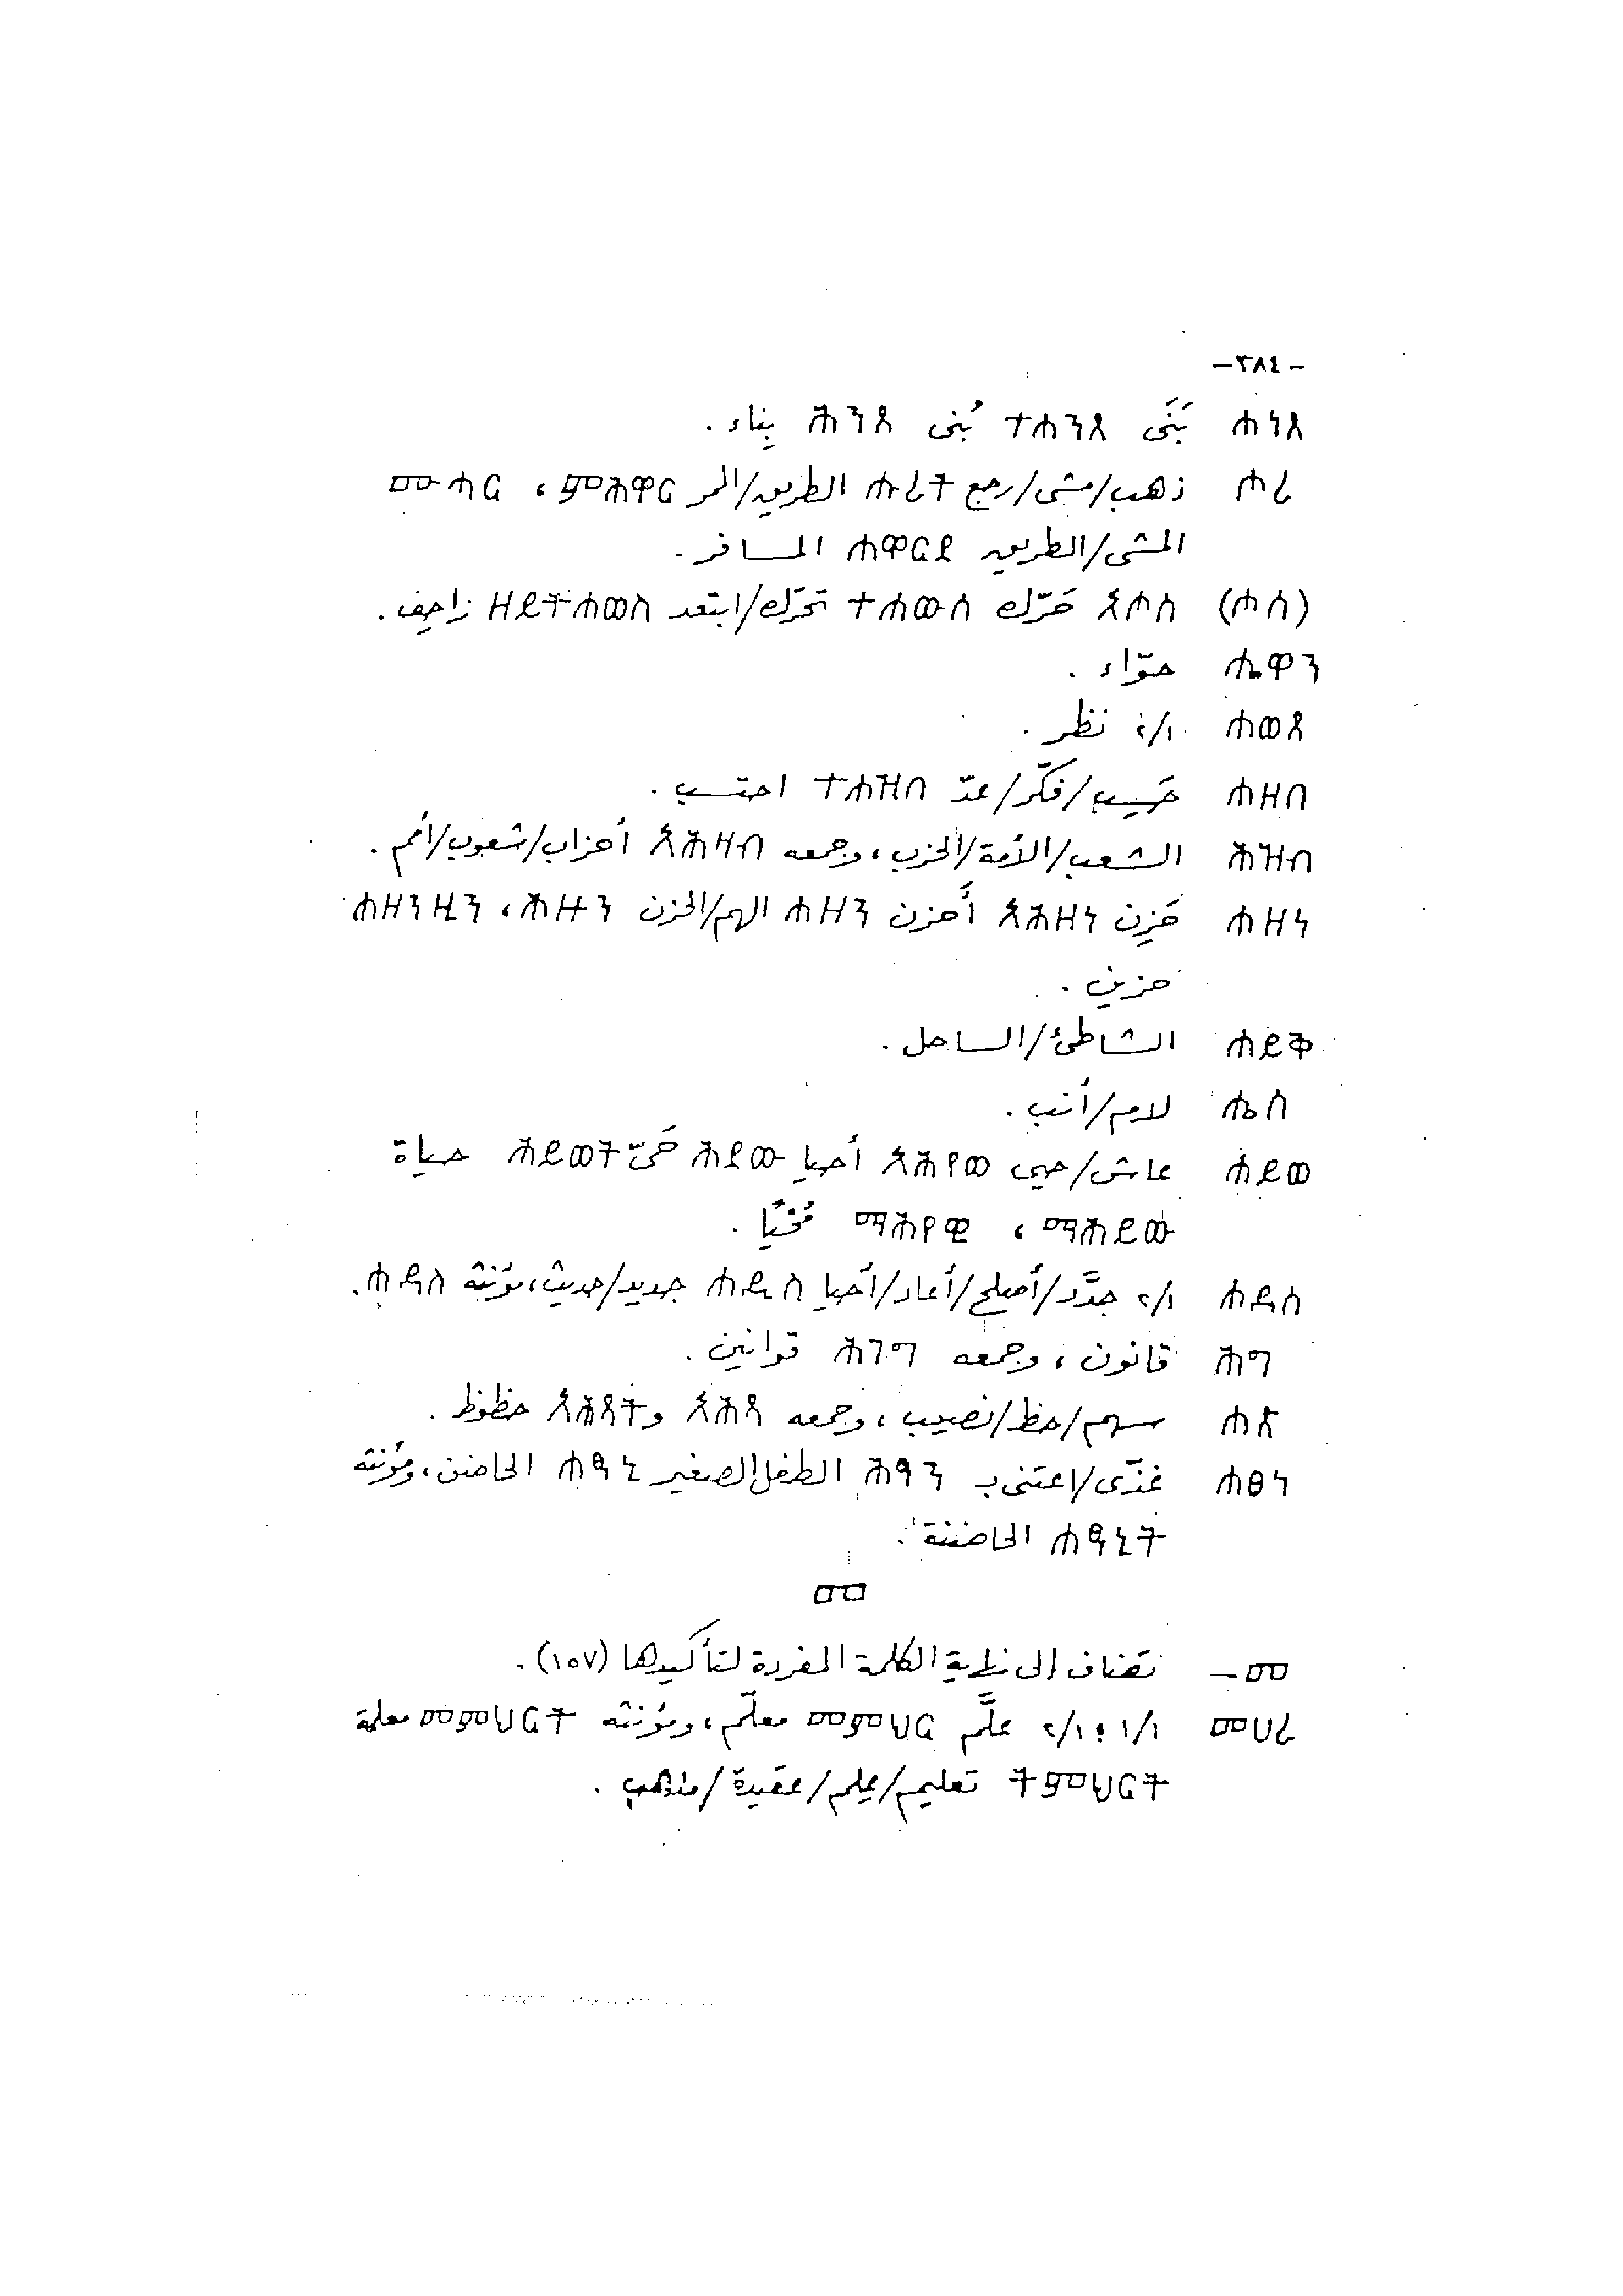 -٣٨٤-
ሐነጸ بَنَى ተሐንጸ بُنى ሕንጻ بِناء .
ሖረ ذهب/مشى/رجع ሑረት الطريق/الممر ምሕዋር ،
المشى/الطريق ሐዋርይ المسافر .
(ሖሰ) አሖሰ حَرّك ተሐውሰ تحرّك/ابتعد ዘይትሐወስ زاحِف .
ሔዋን حوّاء .
ሐወጸ ٢/١ نظر .
ሐዘበ حَسِب/فكّر/عدّ ተሐዝበ احتسب .
ሕዝብ الشعب/الأمة/الحزب ، وجمعه አሕዛብ أحزاب/شعوب/أمم .
ሐዘነ حَزِن አሕዘነ أَحزن ሐዘን الهم/الحزن ሕዙን ،
حزين .
ሐይቅ الشاطئ/الساحل .
ሔሰ لام/أنب .
ሐይወ عاش/حيى አሕየወ أحيا ሕያው حَيّ ሕይወት حياة
ማሕያዊ ، ማሕየዊ مُحْيًا .
ሐደሰ ٢/١ جدَّد/أصلح/أعاد/أحيا ሐዲስ جديد/حديث ، مؤنثه ሐዳስ .
ሕግ قانون ، وجمعه ሕገግ قوانين .
سهم/حظ/نصيب ، وجمعه و حظوظ .
ሐፀነ غذّى/اعتنى بـ ሕፃን الطفل الصغير ሐፃኒ الحاضن ، ومؤنثه
ሐፃኒት الحاضنة .
መ
መ— تضاف الى نهاية الكلمة المفردة لتأكيدها (١٥٧) .
መሀረ ١/١ ؛ ٢/١ علَّم መምህር معلّم ، ومؤنثه መምህርት معلمة
ትምህርት تعليم/عِلم/عقيدة/مذهب .